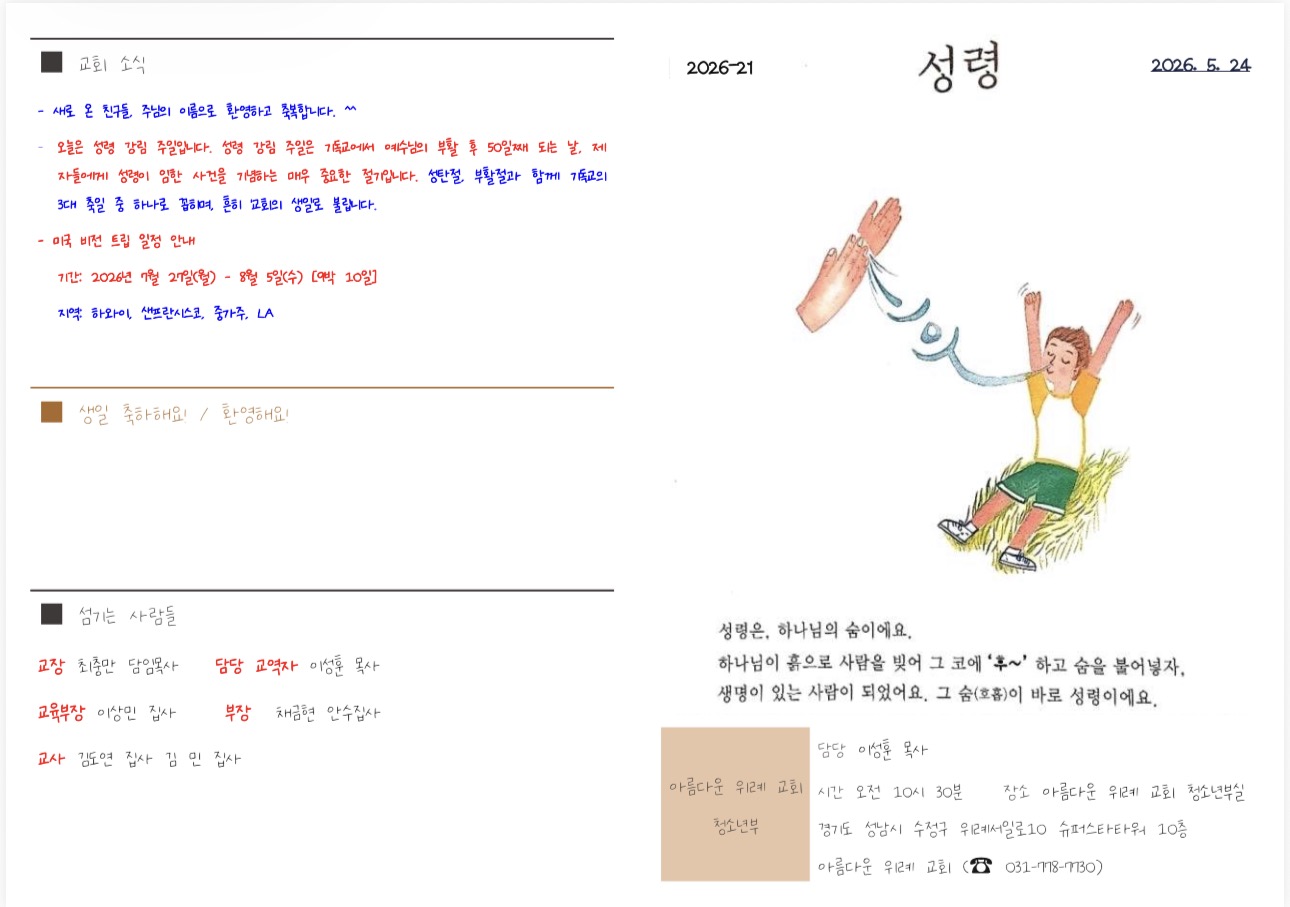 교회 소식
- 새로 온 친구들, 주님의 이름으로 환영하고 축복합니다. ^^
- 오늘은 성령 강림 주일입니다. 성령 강림 주일은 기독교에서 예수님의 부활 후 50일째 되는 날, 제
자들에게 성령이 임한 사건을 기념하는 매우 중요한 절기입니다. 성탄절, 부활절과 함께 기독교의
3대 축일 중 하나로 꼽히며, 흔히 '교회의 생일'로 불립니다.
- 미국 비전 트립 일정 안내
기간: 2026년 7월 27일(월) - 8월 5일(수) [9박 10일]
지역: 하와이, 샌프란시스코, 중가주, LA
생일 축하해요! / 환영해요!
섬기는 사람들
교장 최충만 담임목사 담당 교역자 이성훈 목사
교육부장 이상민 집사 부장 채금현 안수집사
교사 김도연 집사 김 민 집사
2026-21
성령
2026. 5. 24
성령은, 하나님의 숨이에요.
하나님이 흙으로 사람을 빚어 그 코에 ‘후~’ 하고 숨을 불어넣자,
생명이 있는 사람이 되었어요. 그 숨(호흡)이 바로 성령이에요.
아름다운 위례 교회
청소년부
담당 이성훈 목사
시간 오전 10시 30분 장소 아름다운 위례 교회 청소년부실
경기도 성남시 수정구 위례서일로10 슈퍼스타타워 10층
아름다운 위례 교회 (☎ 031-778-7730)